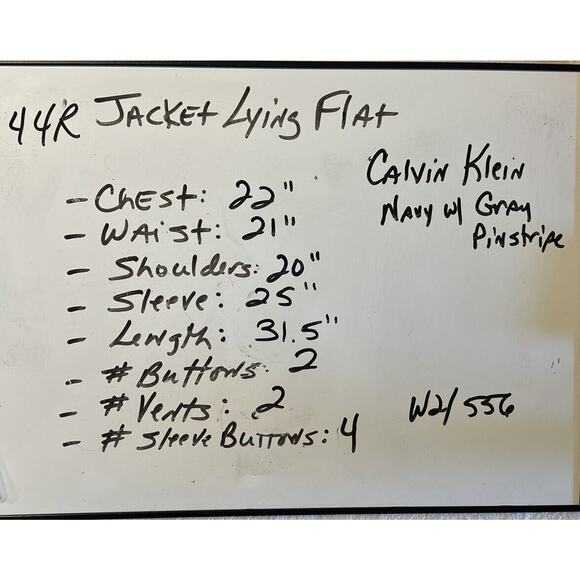 44R Jacket Lying Flat
Calvin Klein
Navy w/ Gray
Pinstripe
- Chest: 22"
- Waist: 21"
- Shoulders: 20"
- Sleeve: 25"
- Length: 31.5"
- # Buttons: 2
- # Vents: 2
- # Sleeve Buttons: 4
W2/556